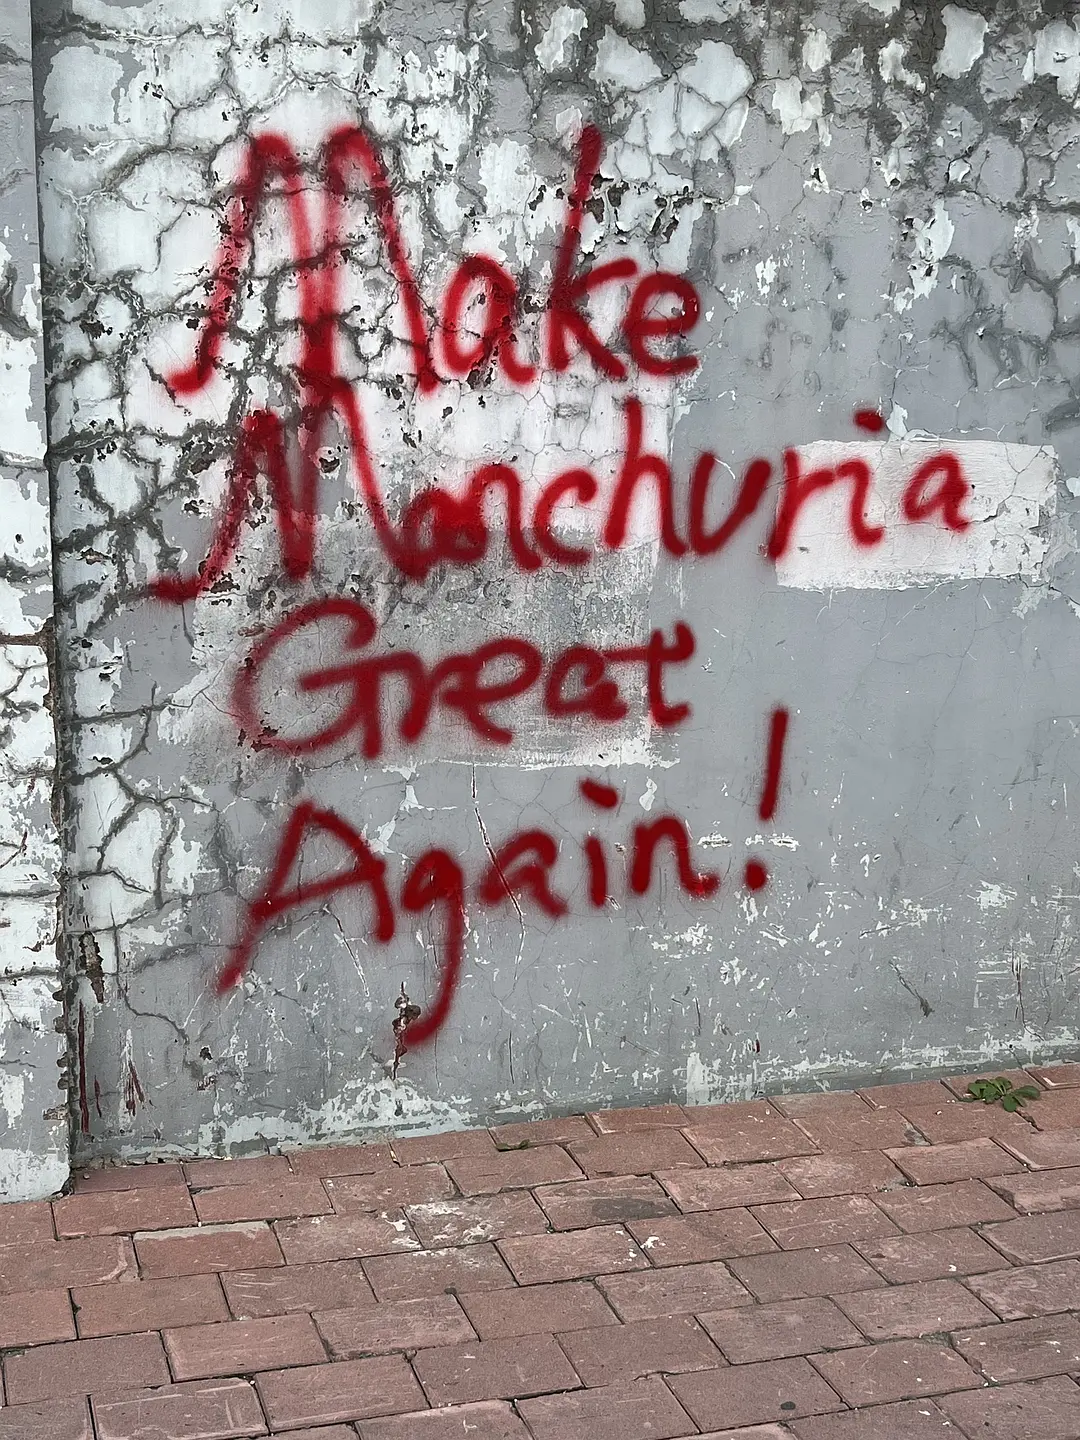 Make
Manchuria
Great
Again!